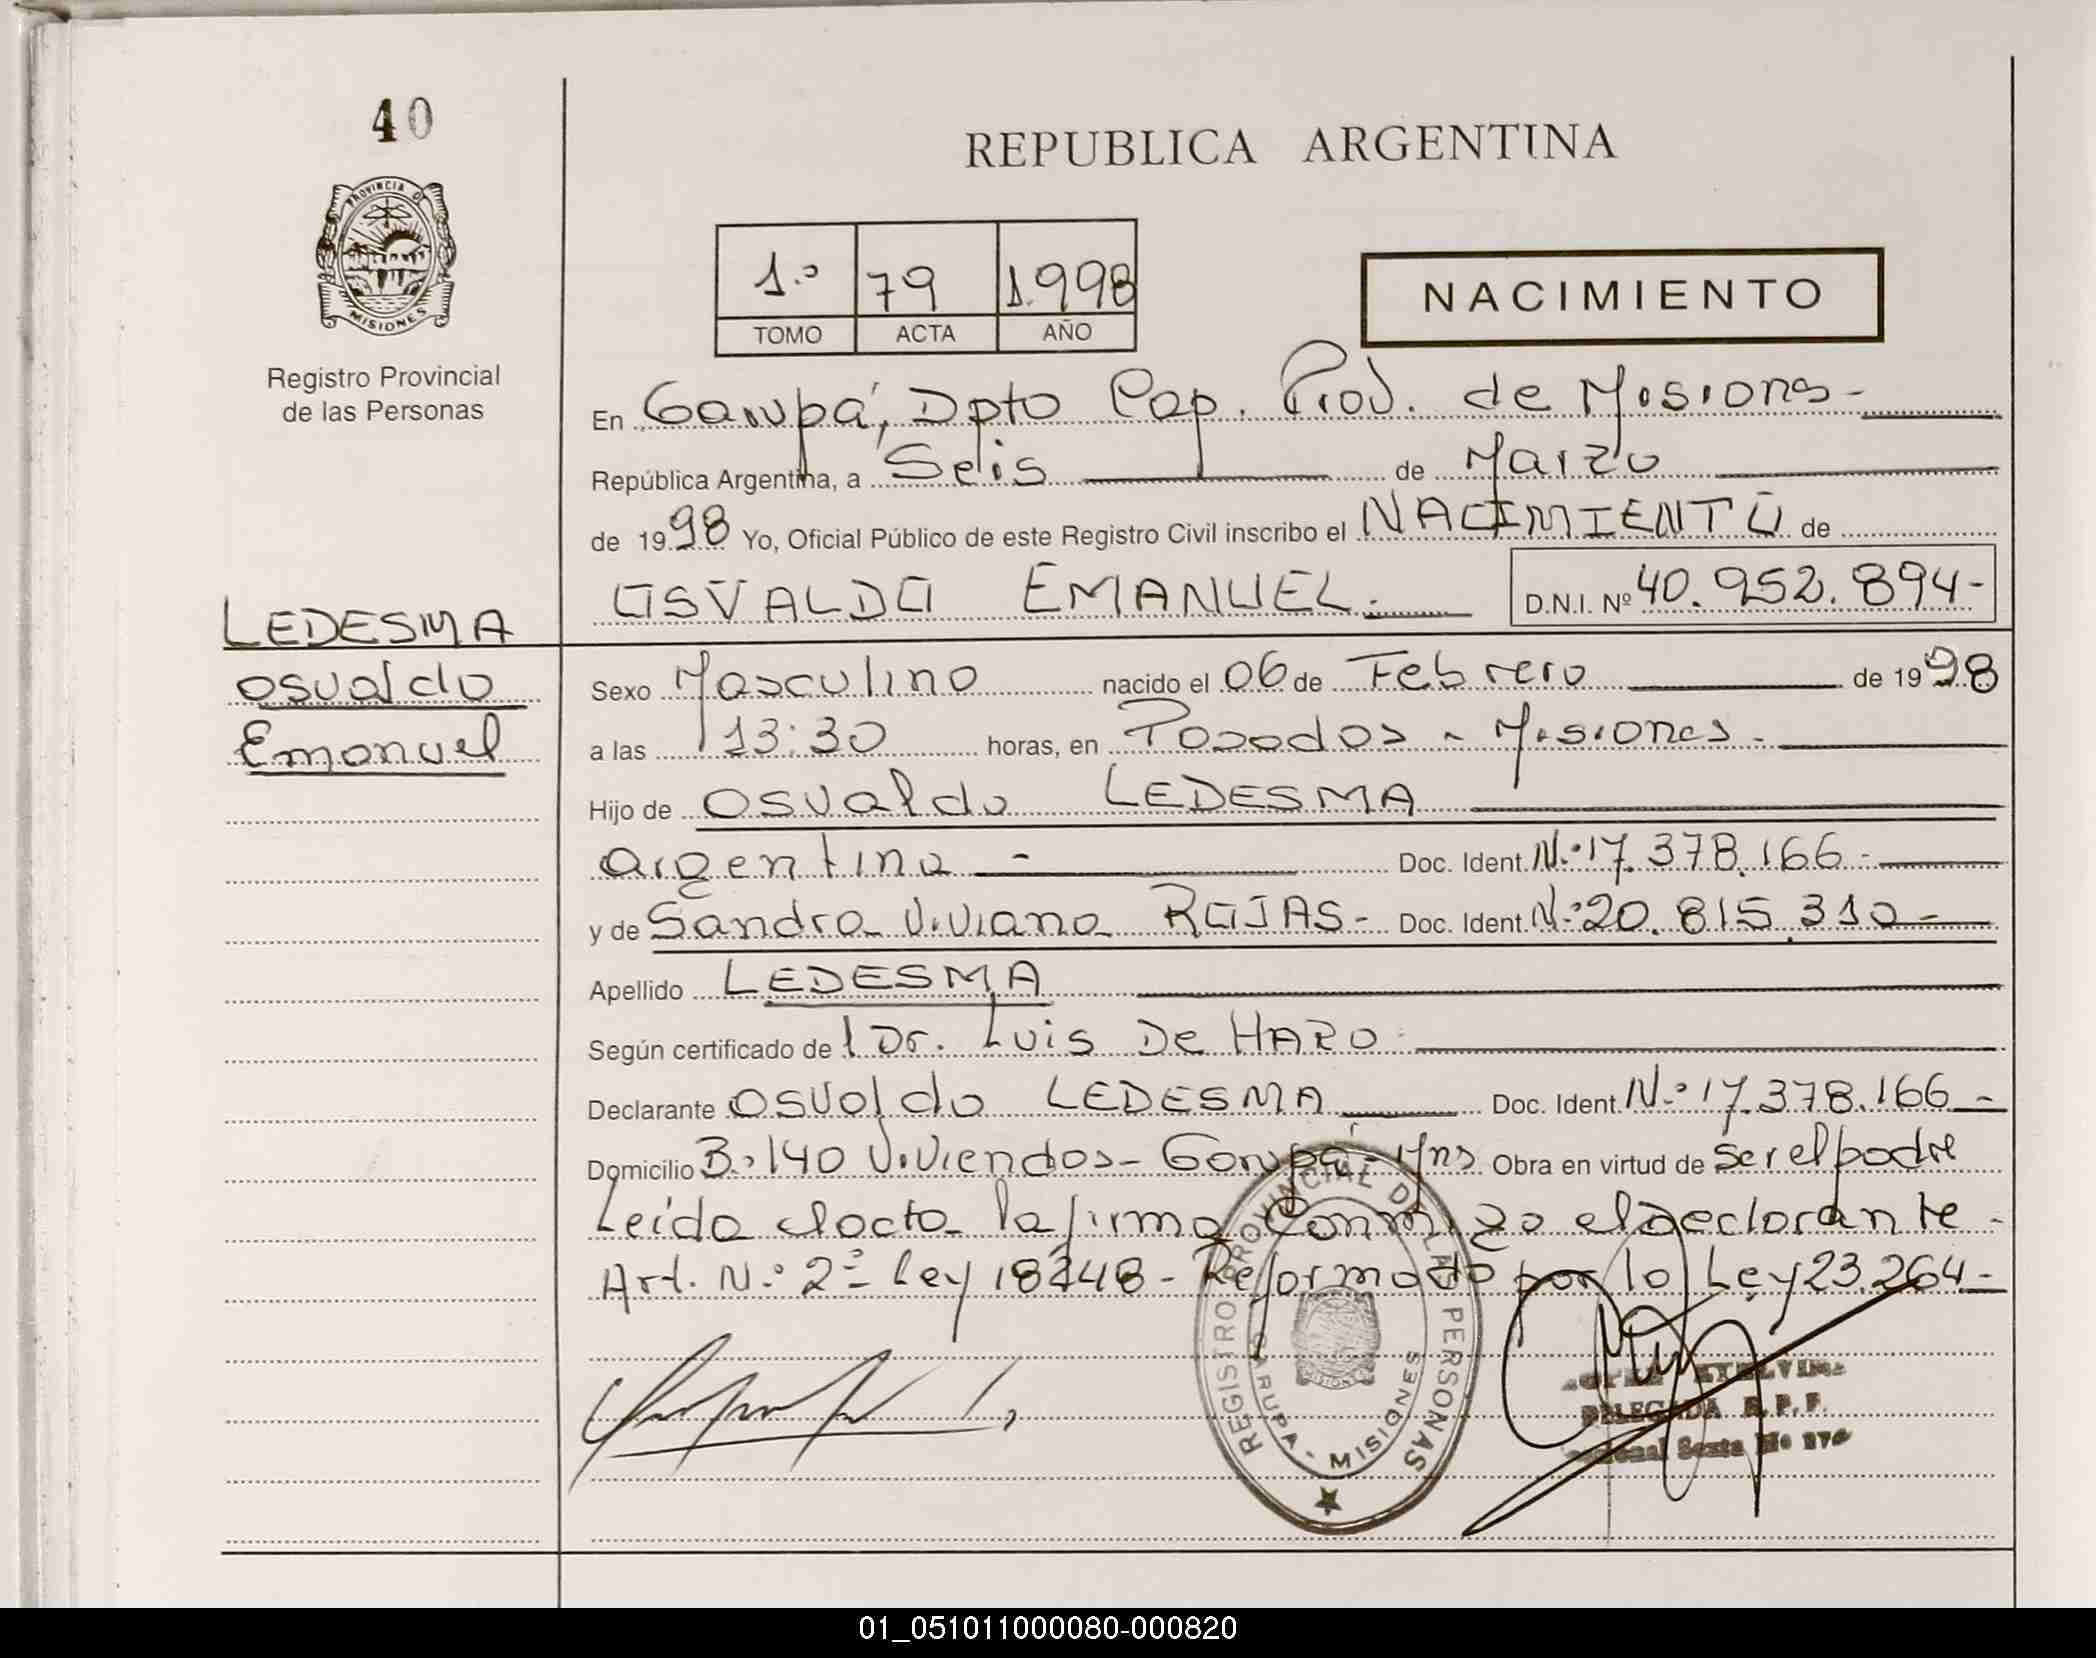 40
PROVINCIA DE
MISIONES
Registro Provincial
de las Personas
LEDESMA
osvaldo
Emanuel
REPUBLICA ARGENTINA
1.º 79 1.998
TOMO ACTA AÑO
NACIMIENTO
En Garupá, Dpto Cap. Prov. de Misiones-
República Argentina, a Seis de Marzo
de 1998 Yo, Oficial Público de este Registro Civil inscribo el NACIMIENTO de
OSVALDO EMANUEL.- D.N.I. Nº 40.952.894-
Sexo Masculino nacido el 06 de Febrero de 1998
a las 13:30 horas, en Posadas - Misiones -
Hijo de Osvaldo LEDESMA
argentino - Doc. Ident. N.º 17.378.166-
y de Sandra Viviana ROJAS- Doc. Ident. N.º 20.815.310-
Apellido LEDESMA
Según certificado de l Dr. Luis De HARO
Declarante Osvaldo LEDESMA Doc. Ident. N.º 17.378.166-
Domicilio B.º 140 Viviendas- Garupá- Mns Obra en virtud de Ser el padre
Leída el acta la firma Conmigo el declarante-
Art. N.º 2º Ley 18248- Reformado por la Ley 23.264-
REGISTRO PROVINCIAL DE LAS PERSONAS
GARUPA - MISIONES
ETELVINA
DELEGADA R.P.P.
01_051011000080-000820